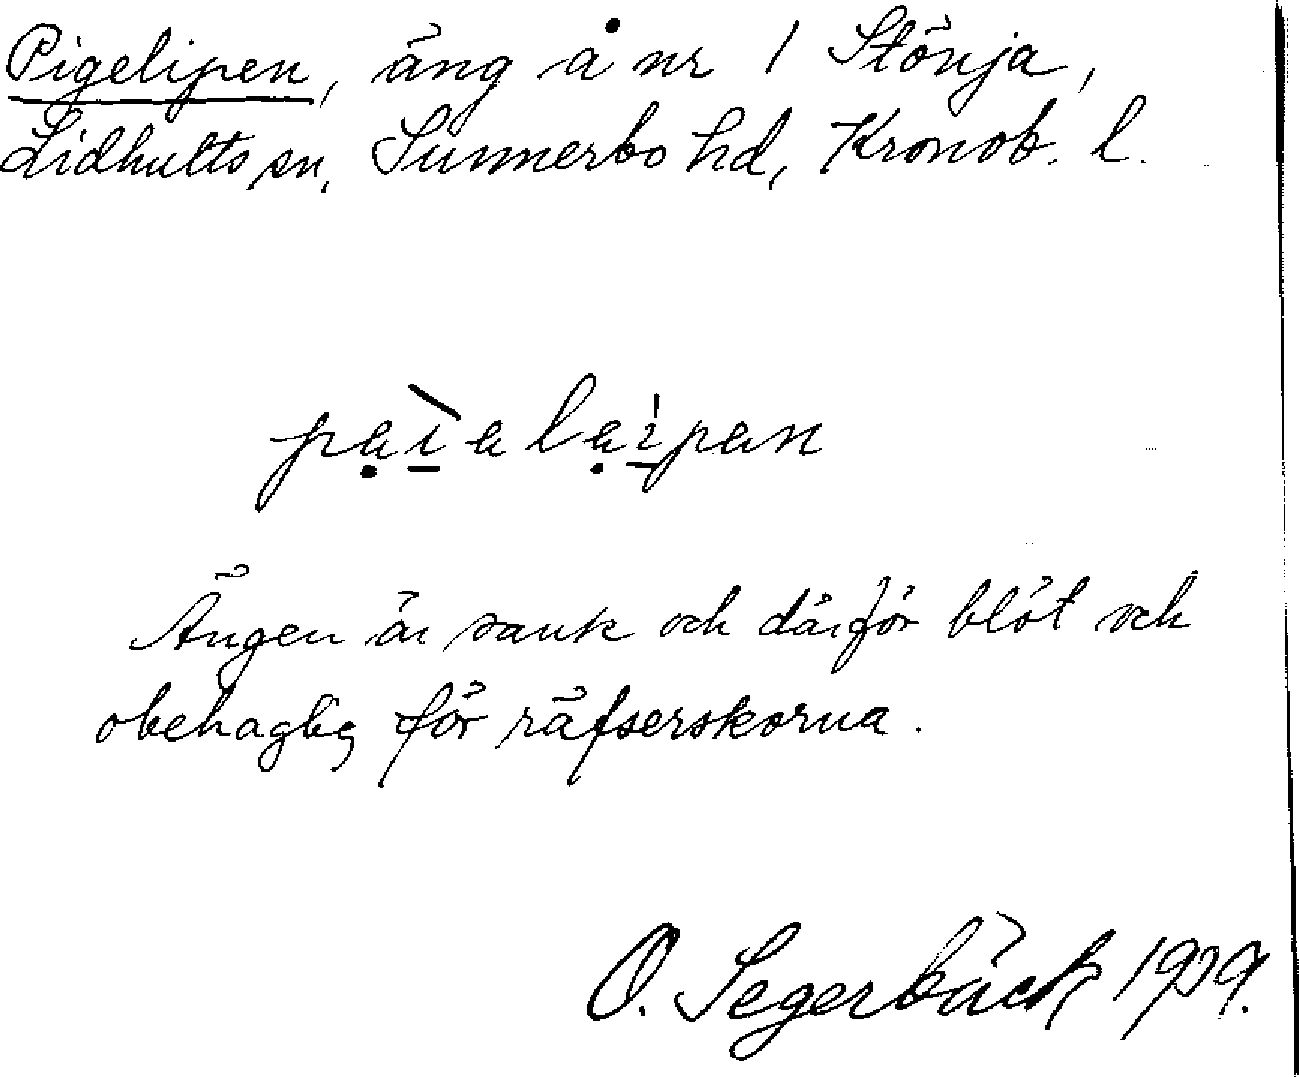 Pigelipen, äng å nr 1 Stönja,
Lidhults sn, Sunnerbo hd, Kronob. l.
pạì̱alạí̱pan
Ängen är sank och därför blöt och
obehaglig för räfserskorna.
O. Segerbäck 1929.